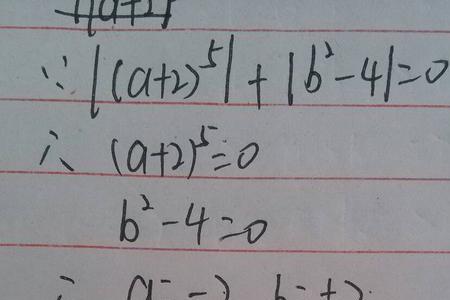 ∵ |(a+2)⁵| + |b²-4|=0
∴ (a+2)⁵=0
b²-4=0